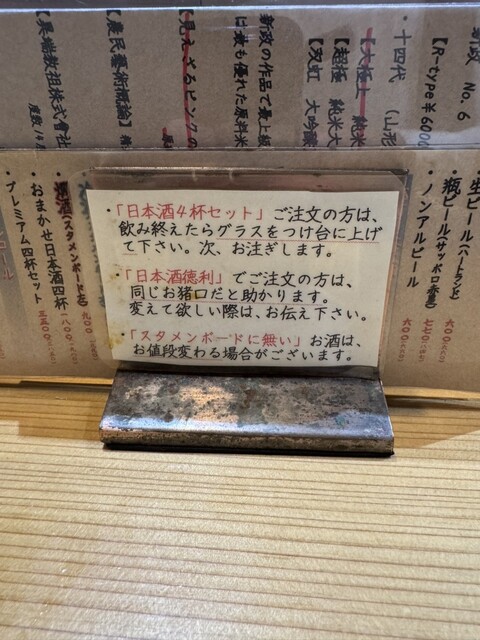 新政 No.6
【R-type ¥6000
・十四代 (山形
【大極上 純米
【超極 純米大
【双虹 大吟醸
新政の作品で最上級
に最も優れた原料米
【見えざるピンクの
【農民藝術概論】
【異端教祖株式会社
・生ビール(ハートランド)
・瓶ビール(サッポロ赤星)
・ノンアルビール
六〇〇
七七〇
六〇〇
・「日本酒4杯セット」ご注文の方は、
飲み終えたらグラスをつけ台に上げ
て下さい。次、お注ぎします。
・「日本酒徳利」でご注文の方は、
同じお猪口だと助かります。
変えて欲しい際は、お伝え下さい。
・「スタメンボードに無い」お酒は、
お値段変わる場合がございます。
(スタメンボード右) 九〇〇
・おまかせ日本酒四杯 一八〇〇
プレミアム四杯セット 三五〇〇